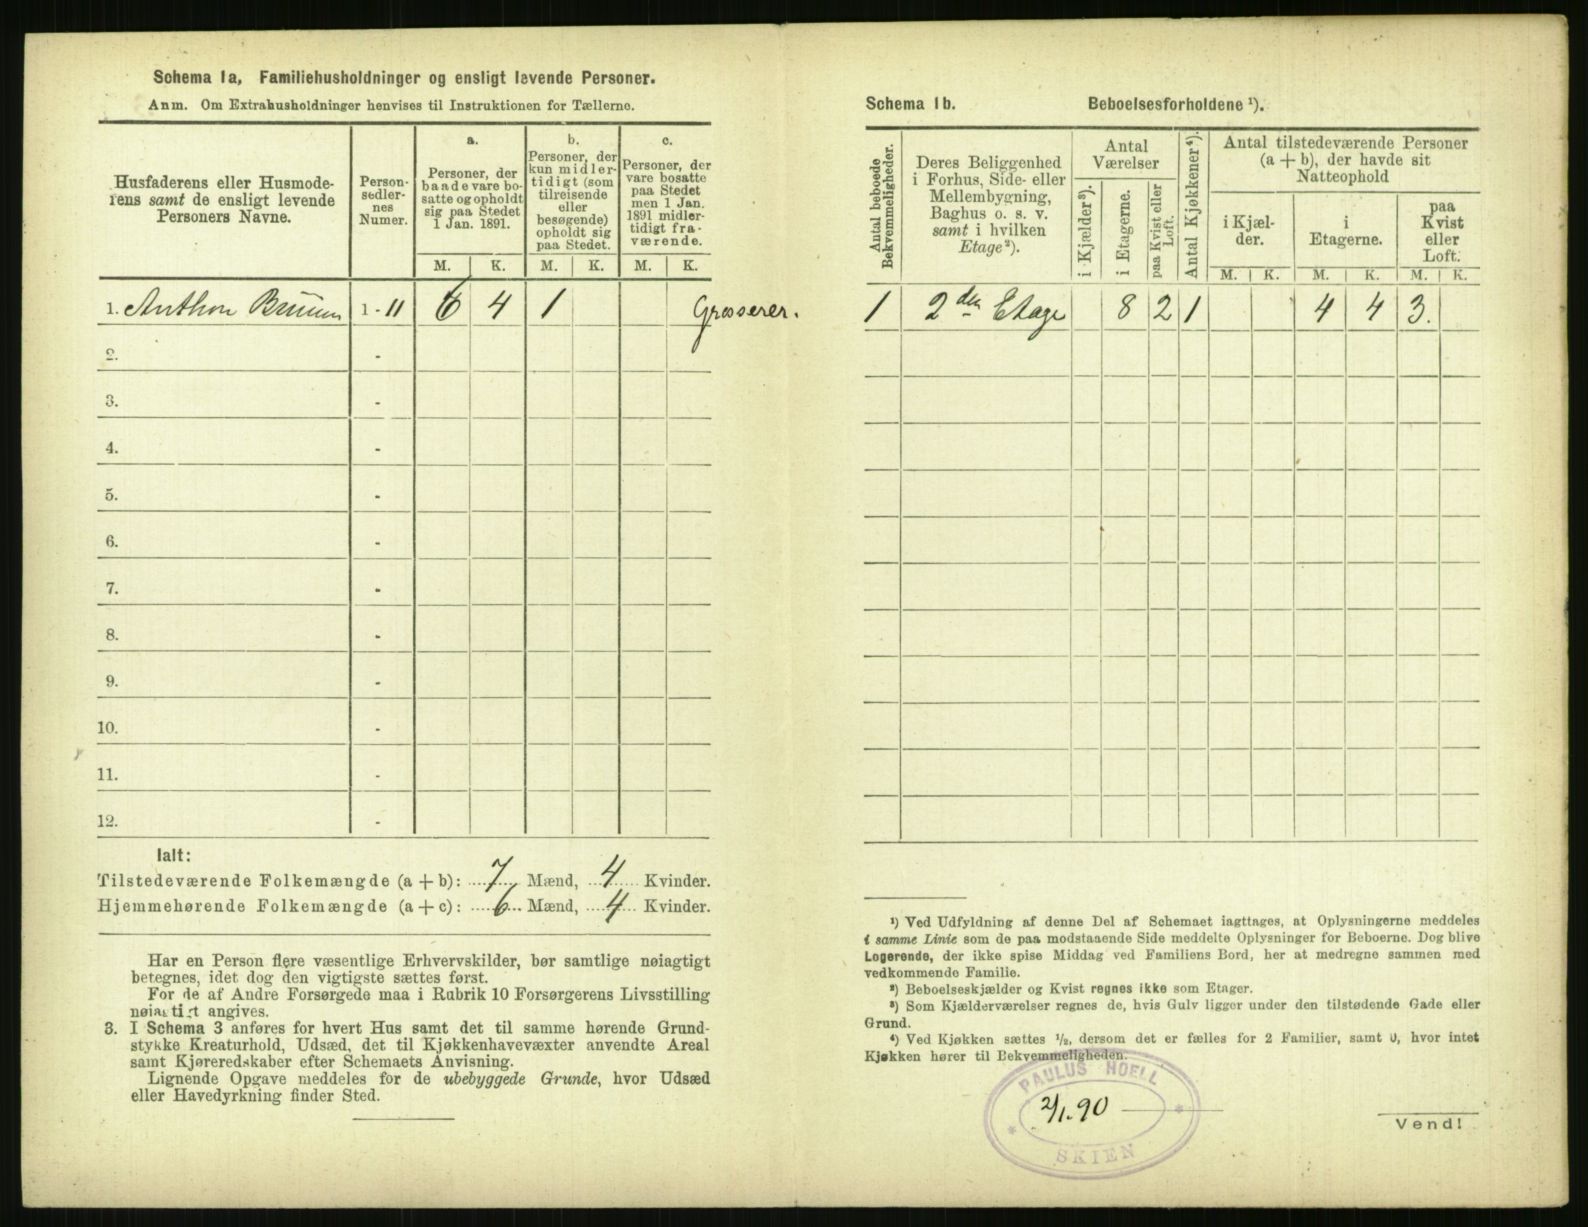 Schema 1a, Familiehusholdninger og ensligt levende Personer.
Anm. Om Extrahusholdninger henvises til Instruktionen for Tællerne.
Husfaderens eller Husmode-
rens samt de ensligt levende
Personers Navne.
Person-
sedler-
nes
Numer.
a.
Personer, der
baade vare bo-
satte og opholdt
sig paa Stedet
1 Jan. 1891.
b.
Personer, der
kun midler-
tidigt (som
tilreisende
eller
besøgende)
opholdt sig
paa Stedet.
c.
Personer, der
vare bosatte
paa Stedet
men 1 Jan.
1891 midler-
tidigt fra-
værende.
M. K. M. K. M. K.
1. Anthon Bruun 1 - 11 6 4 1 Grosserer.
2. -
3. -
4. -
5. -
6. -
7. -
8. -
9. -
10. -
11. -
12. -
Ialt:
Tilstedeværende Folkemængde (a + b): 7 Mænd, 4 Kvinder.
Hjemmehørende Folkemængde (a + c): 6 Mænd, 4 Kvinder.
Har en Person flere væsentlige Erhvervskilder, bør samtlige nøiagtigt
betegnes, idet dog den vigtigste sættes først.
For de af Andre Forsørgede maa i Rubrik 10 Forsørgerens Livsstilling
nøiagtigt angives.
3. I Schema 3 anføres for hvert Hus samt det til samme hørende Grund-
stykke Kreaturhold, Udsæd, det til Kjøkkenhavevæxter anvendte Areal
samt Kjøreredskaber efter Schemaets Anvisning.
Lignende Opgave meddeles for de ubebyggede Grunde, hvor Udsæd
eller Havedyrkning finder Sted.
Schema 1b. Beboelsesforholdene ¹).
Antal beboede
Bekvemmeligheder.
Deres Beliggenhed
i Forhus, Side- eller
Mellembygning,
Baghus o. s. v.
samt i hvilken
Etage²).
Antal
Værelser
i Kjælder³).
i Etagerne.
paa Kvist eller
Loft.
Antal Kjøkkener⁴).
Antal tilstedeværende Personer
(a + b), der havde sit
Natteophold
i Kjæl-
der.
i
Etagerne.
paa
Kvist
eller
Loft.
M. K. M. K. M. K.
1 2den Etage 8 2 1 4 4 3.
¹) Ved Udfyldning af denne Del af Schemaet iagttages, at Oplysningerne meddeles
i samme Linie som de paa modstaaende Side meddelte Oplysninger for Beboerne. Dog blive
Logerende, der ikke spise Middag ved Familiens Bord, her at medregne sammen med
vedkommende Familie.
²) Beboelseskjælder og Kvist regnes ikke som Etager.
³) Som Kjælderværelser regnes de, hvis Gulv ligger under den tilstødende Gade eller
Grund.
⁴) Ved Kjøkken sættes ½, dersom det er fælles for 2 Familier, samt 0, hvor intet
Kjøkken hører til Bekvemmeligheden.
PAULUS HOELL
2/1.90
* *
SKIEN
Vend!